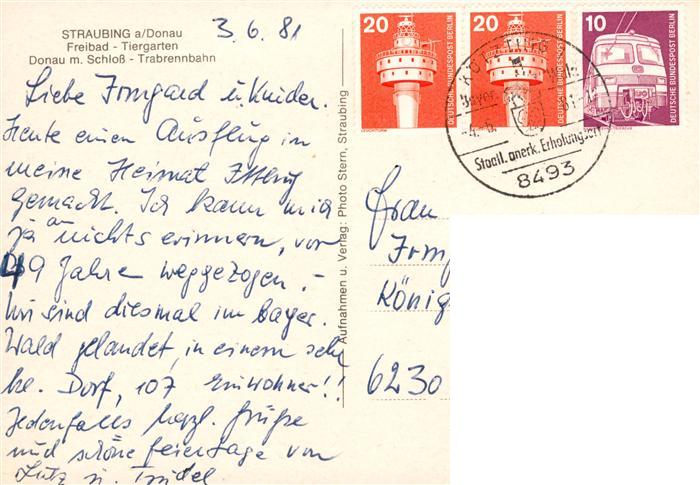 STRAUBING a/Donau
Freibad - Tiergarten
Donau m. Schloß - Trabrennbahn
3.6.81
Liebe Irmgard u. Kinder.
Heute einen Ausflug in
meine Heimat Ittling
gemacht. Ich kann mich
ja an nichts erinnern, vor
49 Jahre weggezogen. –
Wir sind diesmal im bayer.
Wald gelandet, in einem sehr
Dorf, 107 Einwohner!!
Jedenfalls herzl. Grüße
und schöne Feiertage von
Lutz u. Trudel
Aufnahmen u. Verlag: Photo Stern, Straubing
20
DEUTSCHE BUNDESPOST BERLIN
LEUCHTTURM
20
DEUTSCHE BUNDESPOST BERLIN
10
DEUTSCHE BUNDESPOST BERLIN
KÖTZTING
Staatl. anerk. Erholungsort
8493
Frau
Irmg
König
6230